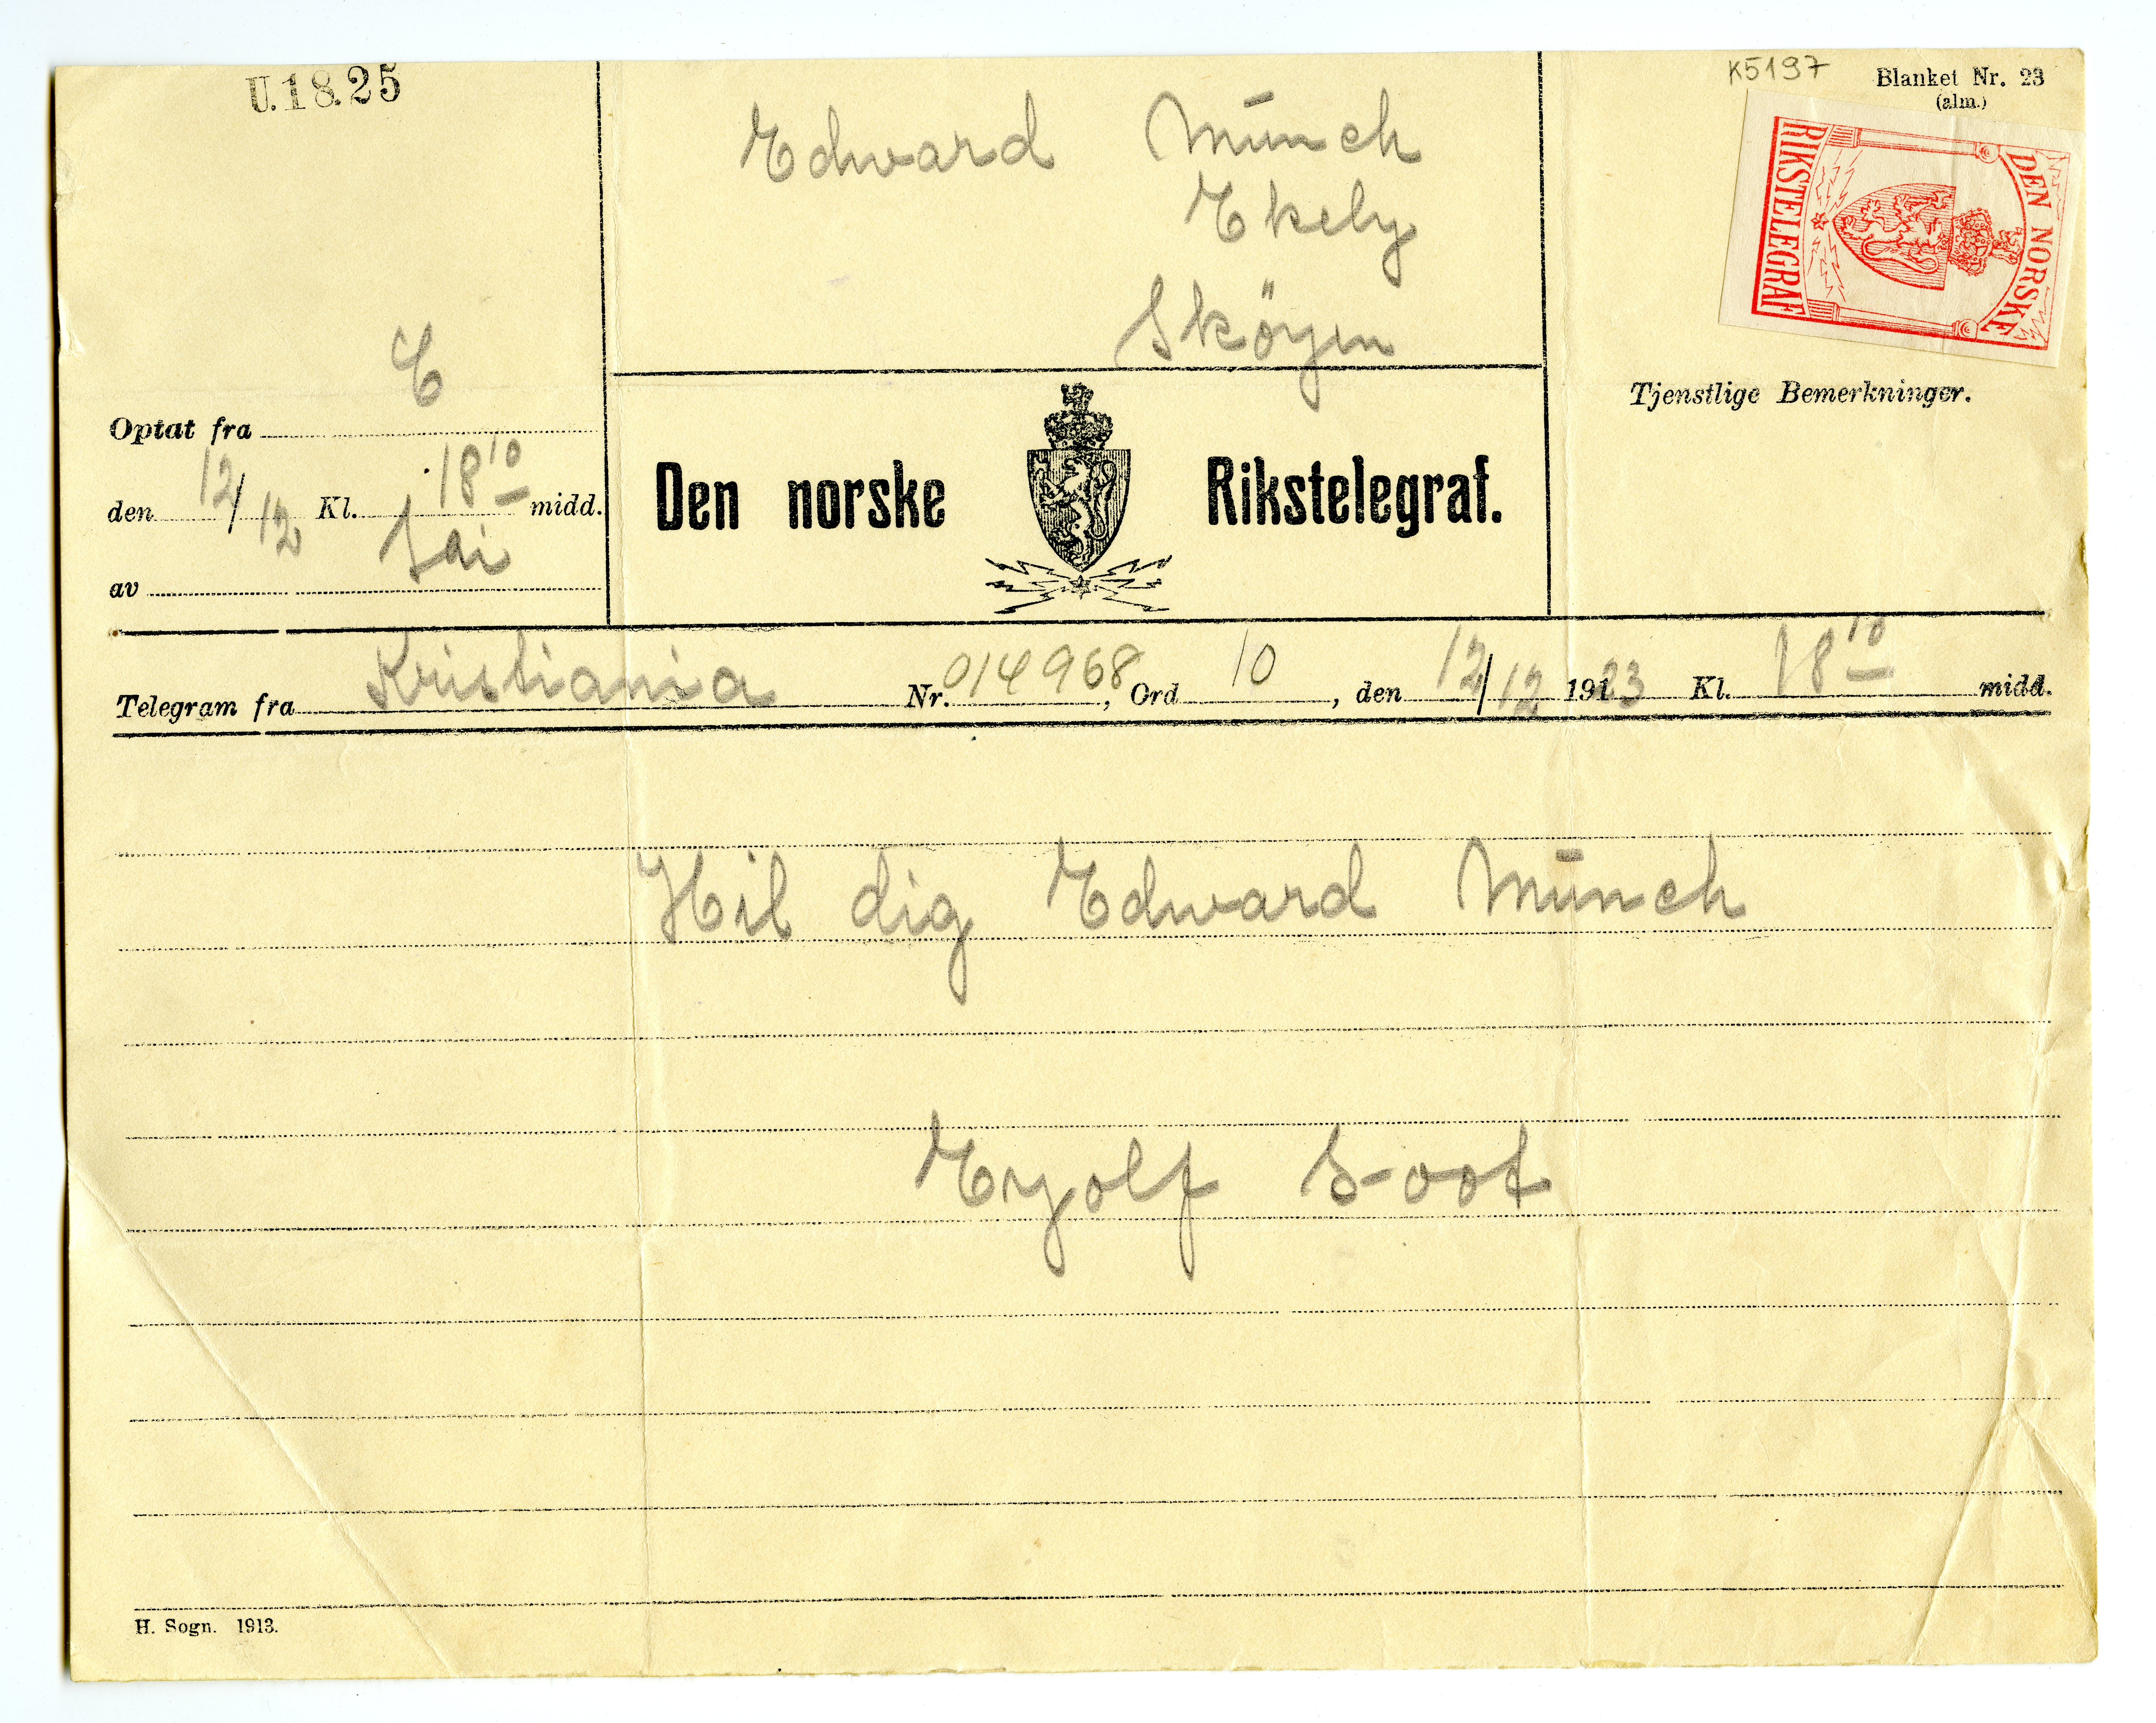 U.18.25
K5197
Blanket Nr. 23
(alm.)
Edward Münch
Ekely
Sköyen
DEN NORSKE
RIKSTELEGRAF
Tjenstlige Bemerkninger.
E
Optat fra
den 12/12 Kl. 18 10 midd.
av Sai
Den norske Rikstelegraf.
Telegram fra Kristiania Nr. 014968, Ord 10, den 12/12 1923 Kl. 18 10 midd.
Hil dig Edward Münch
Eyolf Soot
H. Sogn. 1913.